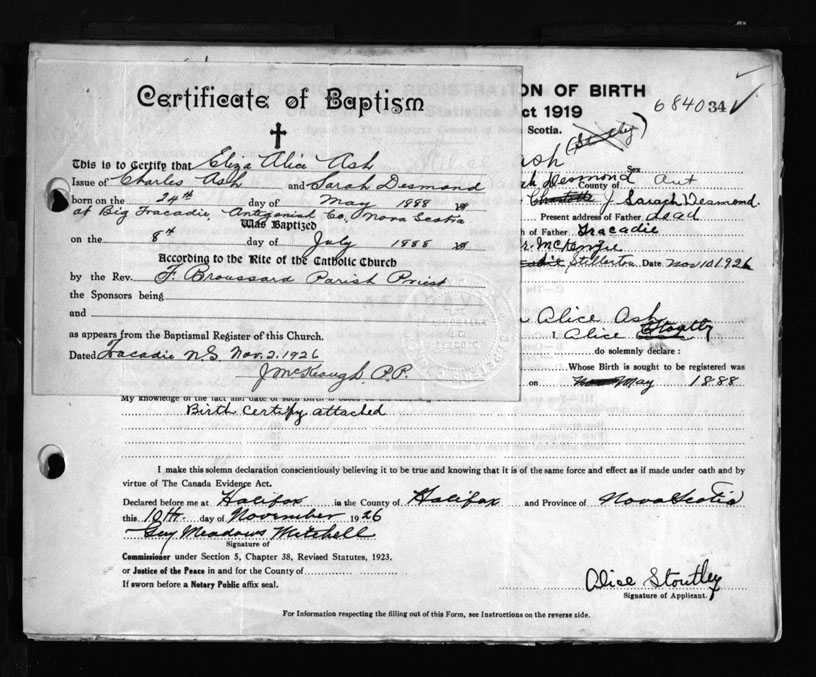 Certificate of Baptism
This is to Certify that Eliza Alice Ash
Issue of Charles Ash and Sarah Desmond
born on the 24th day of May 1888
at Big Tracadie, Antigonish Co, Nova Scotia
Was Baptized
on the 8th day of July 1888
According to the Rite of the Catholic Church
by the Rev. F. Broussard Parish Priest
the Sponsors being
and
as appears from the Baptismal Register of this Church.
Dated Tracadie N.S. Nov. 2. 1926
J McKeough P.P.
ON OF BIRTH
ct 1919
684034
Scotia. (Stoutley)
Ash
Sex
Desmond County of Ant
J Sarach Desmond.
Present address of Father dead
h of Father Tracadie
r. McKenzie
Stellarton Date Nov 10 1926
Alice Ash
I Alice Stoutley
do solemnly declare :
Whose Birth is sought to be registered was
on May 1888
My knowledge of the fact and date of such birth is based on the
Birth Certify attached
I make this solemn declaration conscientiously believing it to be true and knowing that it is of the same force and effect as if made under oath and by
virtue of The Canada Evidence Act.
Declared before me at Halifax in the County of Halifax and Province of Nova Scotia
this 10th day of November 1926
Guy Meadows Mitchell
Signature of
Commissioner under Section 5, Chapter 38, Revised Statutes, 1923.
or Justice of the Peace in and for the County of
If sworn before a Notary Public affix seal.
Alice Stoutley
Signature of Applicant.
For Information respecting the filling out of this Form, see Instructions on the reverse side.